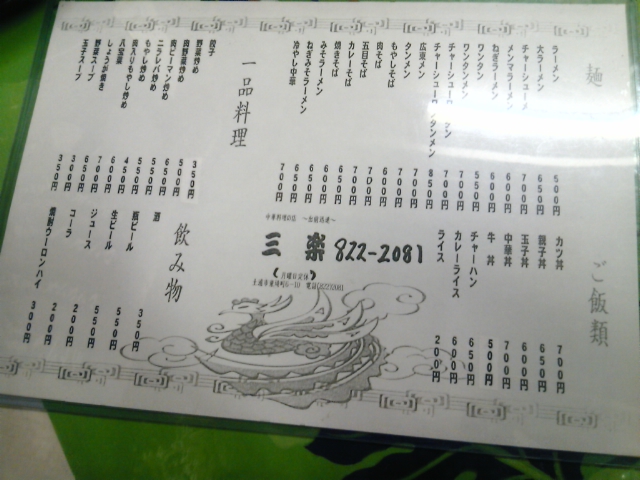 麺
ラーメン 500円
大ラーメン 650円
チャーシューメ
メンマラーメン
ねぎラーメン
ワンタン 500円
ワンタンメン
チャーシューワ
チャーシューワンタンメン 850円
広東メン 700円
タンメン
もやしそば
肉そば
五目そば 700円
カレーそば
焼きそば
みそラーメン
ねぎみそラーメン
冷やし中華 700円
ご飯類
カツ丼 700円
親子丼 650円
玉子丼 600円
中華丼 700円
牛丼 500円
チャーハン 600円
カレーライス 650円
ライス 200円
一品料理
餃子 350円
野菜炒め 500円
肉野菜炒め 650円
肉ピーマン炒め
ニラレバ炒め
もやし炒め 450円
肉入りもやし炒め
八宝菜 700円
しょうが焼き 650円
野菜スープ 300円
玉子スープ 350円
飲み物
酒 350円
瓶ビール 550円
生ビール 550円
ジュース 200円
コーラ 200円
焼酎ウーロンハイ 300円
中華料理の店 ～出前迅速～
三楽 822-2081
(月曜日定休)